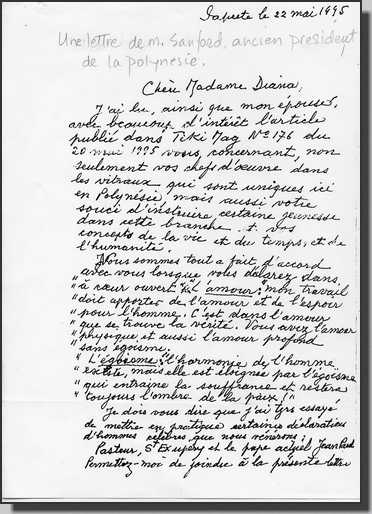 Papeete le 22 mai 1995
Une lettre de M. Sanford, ancien président
de la polynésie.
Chère Madame Diana,
J'ai lu, ainsi que mon épouse,
avec beaucoup d'intérêt l'article
publié dans Tiki Mag N° 176 du
20 mai 1995 vous, concernant, non
seulement vos chefs d'œuvre dans
les vitraux qui sont uniques ici
en Polynésie, mais aussi votre
souci d'instruire certaine jeunesse
dans cette branche. et vos
concepts de la vie et du temps, et de
l'humanité.
Nous sommes tout a fait d'accord
" avec vous lorsque vous déclarez dans,
" à cœur ouvert "et amour": mon travail
" doit apporter de l'amour et de l'espoir
" pour l'homme. C'est dans l'amour
" que se trouve la vérité. Vous avez l'amour
" physique et aussi l'amour profond
sans égoïsme.
" L'égoïsme: "l'harmonie de l'homme
" existe, mais elle est éloignée par l'égoïsme
" qui entraine la souffrance et restera
" toujours l'ombre de la paix!"
Je dois vous dire que j'ai tjrs essayé
de mettre en pratique certaines déclarations
d'hommes célèbres que nous vénérons:
Pasteur, St Exupéry et le pape actuel Jean Paul
Permettez-moi de joindre à la présente lettre